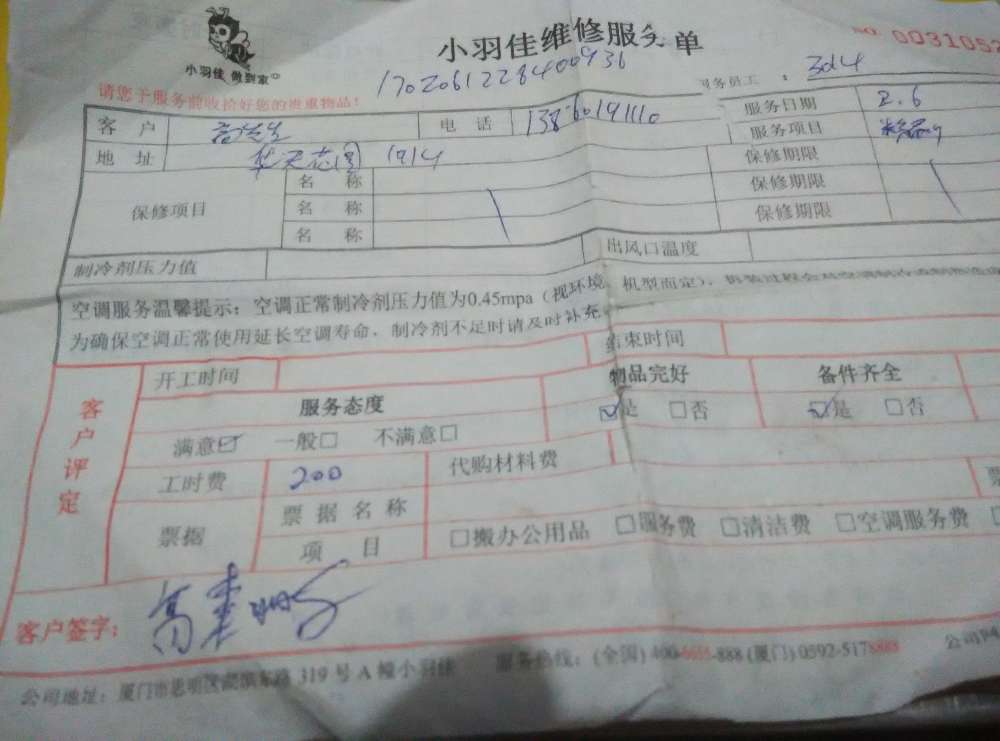 小羽佳维修服务单
NO. 0031052
小羽佳 做到家
1702061228400936
服务员工：3d14
请您予服务前收拾好您的贵重物品！
客户 高先生 电话 13860191110 服务日期 2.6
地址 华天花园 1914 服务项目
保修项目 名称 保修期限
名称 保修期限
名称 保修期限
制冷剂压力值 出风口温度
空调服务温馨提示：空调正常制冷剂压力值为0.45mpa（视环境、机型而定），
为确保空调正常使用延长空调寿命，制冷剂不足时请及时补充
客户评定
开工时间 结束时间
服务态度 物品完好 备件齐全
满意☑ 一般□ 不满意□ ☑是 □否 ☑是 □否
工时费 200 代购材料费 票
票据 票据名称
项目 □搬办公用品 □服务费 □清洁费 □空调服务费 □
客户签字：高
公司地址：厦门市思明区 319号A幢小羽佳 服务热线：(全国) 400-6655-888 (厦门) 0592-5178888 公司网